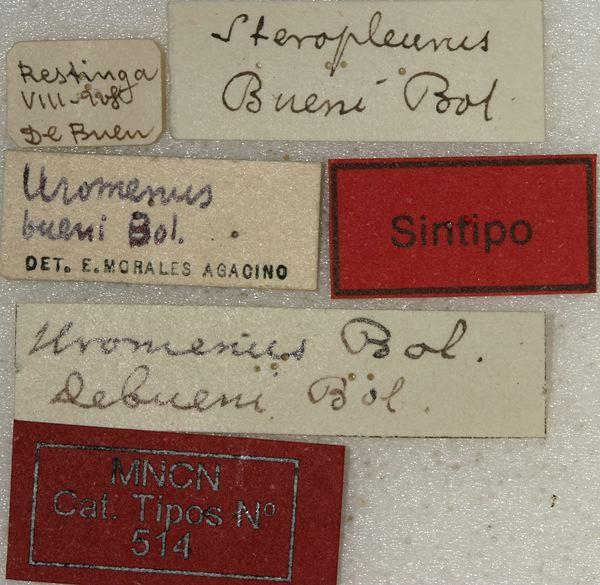 Steropleurus
Bueni Bol.
Restinga
VIII-908
De Buen
Uromenus
bueni Bol.
DET. E. MORALES AGACINO
Sintipo
Uromenus Bol.
Debueni Bol.
MNCN
Cat. Tipos Nº
514